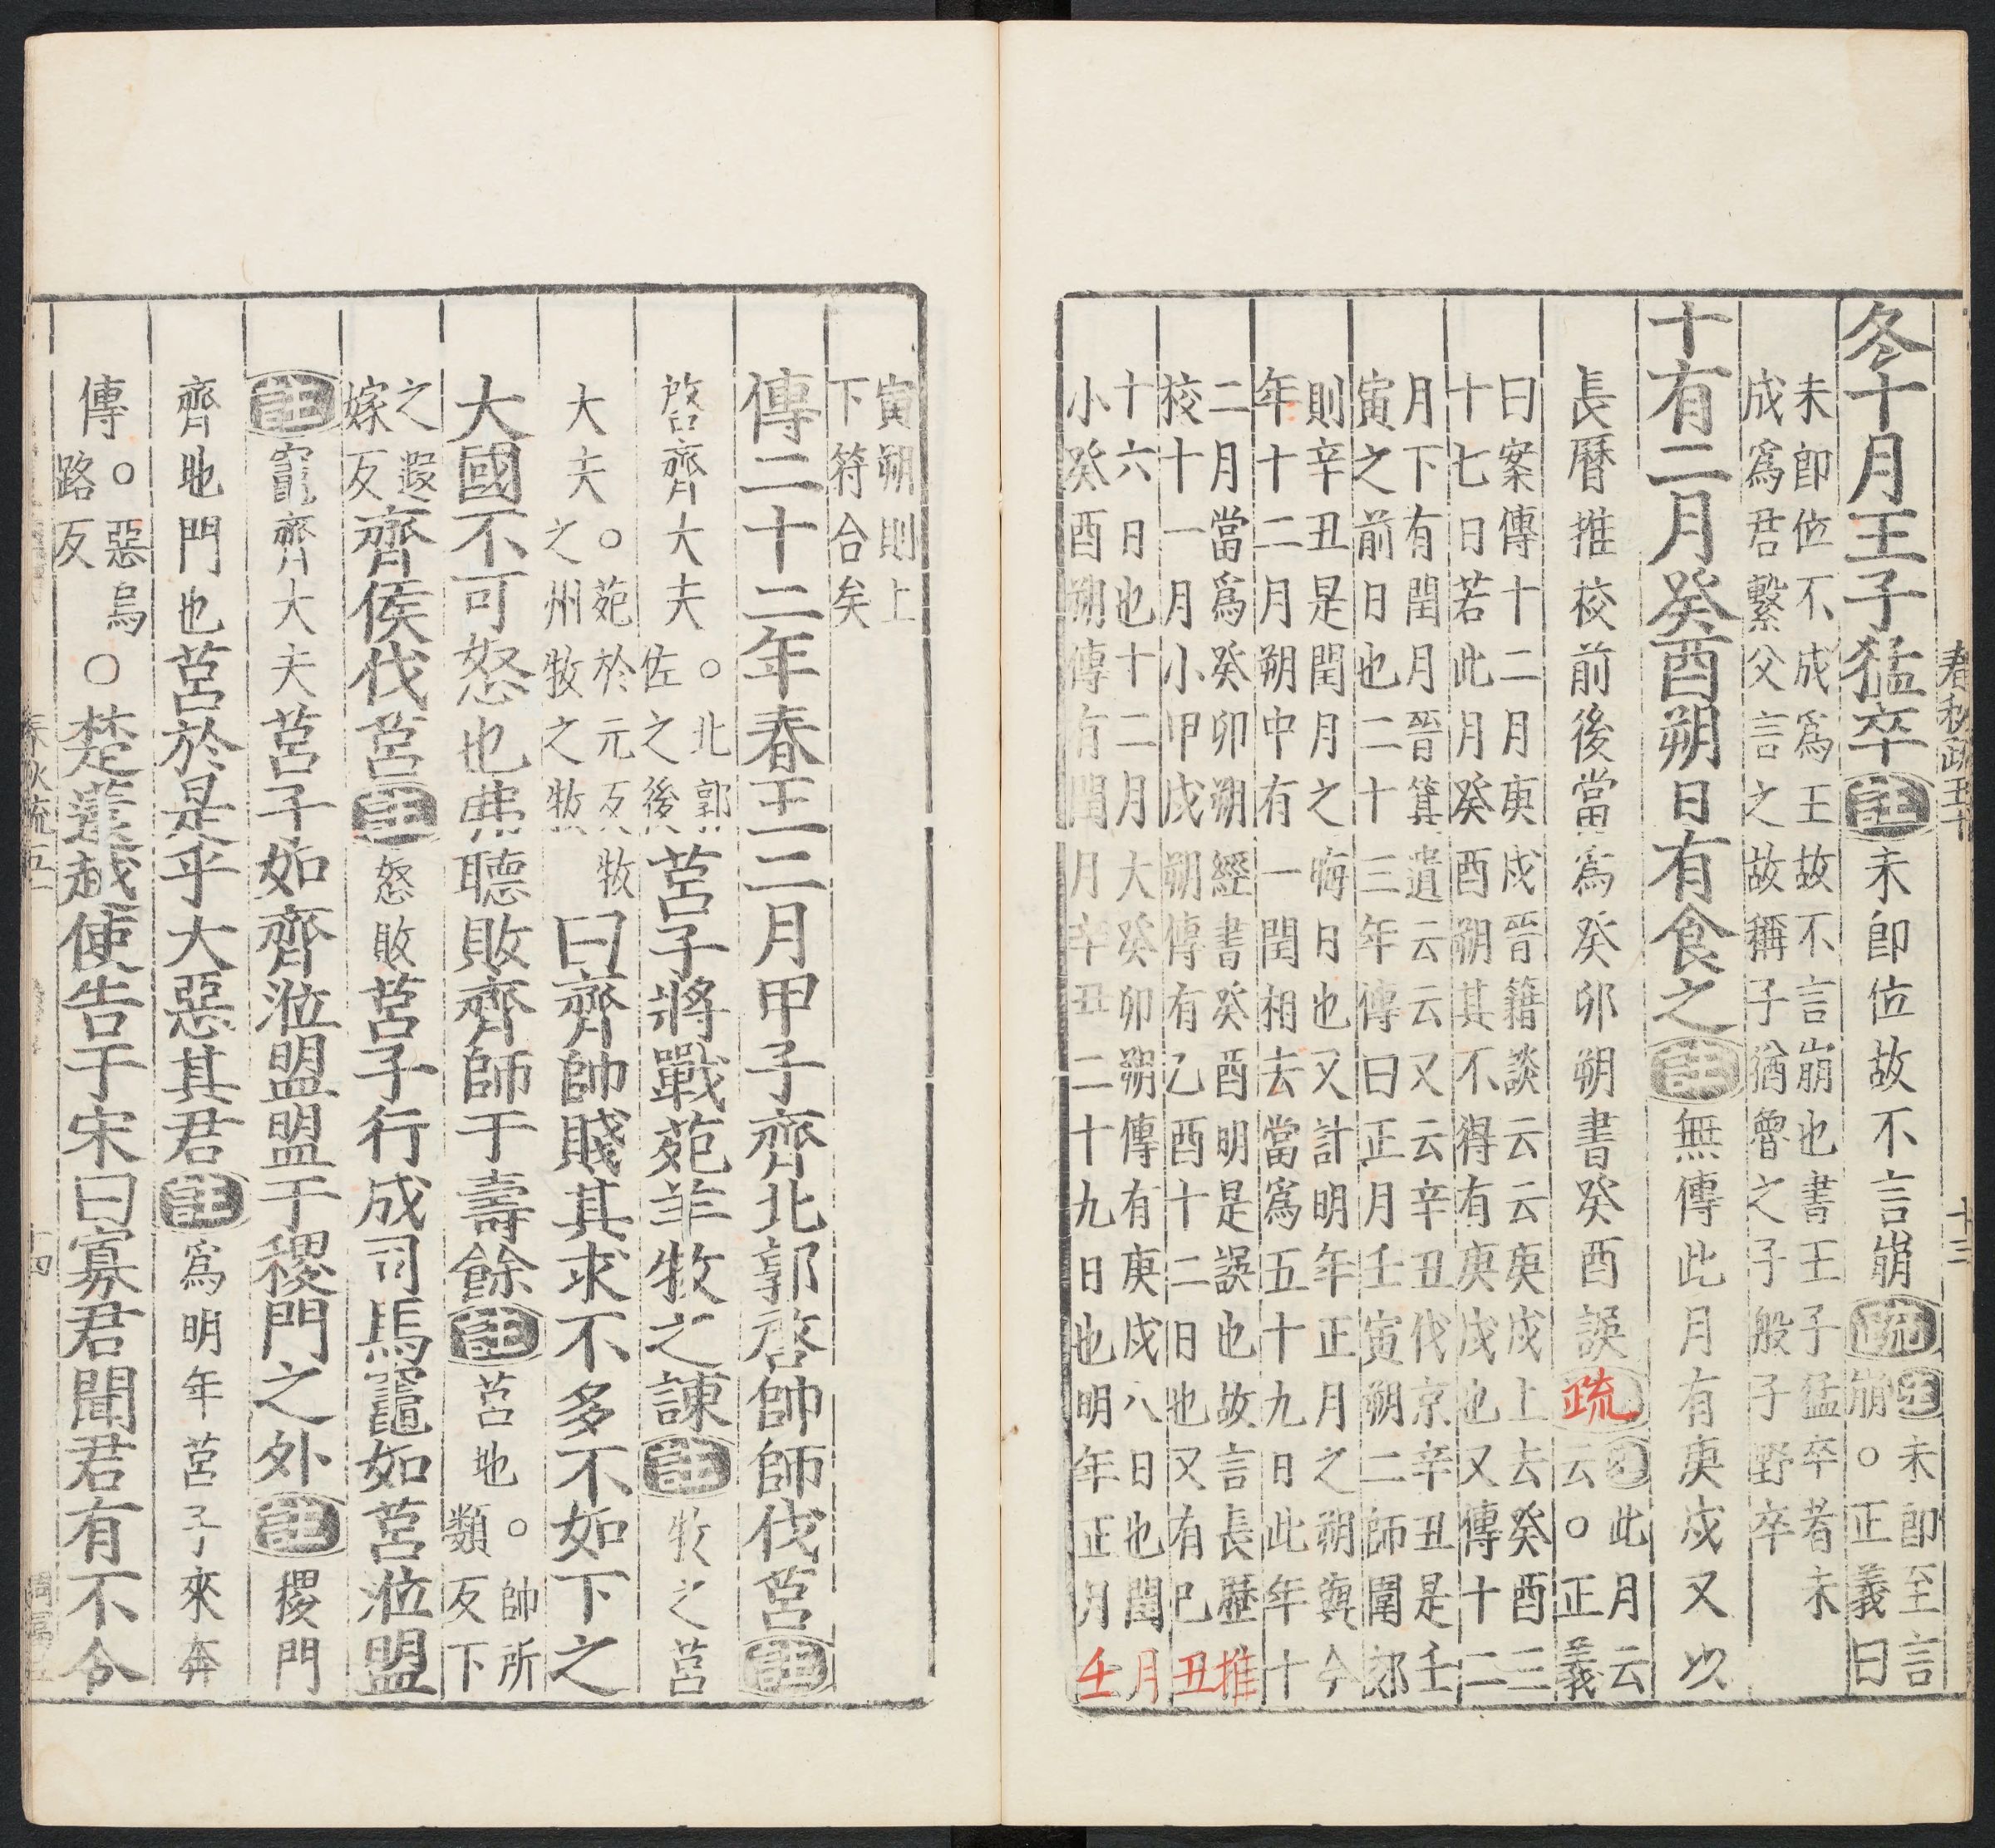 春秋疏五十 十三
冬十月王子猛卒註未卽位故不言崩疏註未卽至言崩。正義曰
未卽位不成爲王故不言崩也書王子猛卒者未
成爲君繫父言之故稱子猶魯之子般子野卒
十有二月癸酉朔日有食之註無傳此月有庚戌又以
長曆推校前後當爲癸卯朔書癸酉誤疏註此月云云。正義
曰案傳十二月庚戌晉籍談云云庚戌上去癸酉三
十七日若此月癸酉朔其不得有庚戌也又傳十二
月下有閏月晉箕遺云云又云辛丑伐京辛丑是壬
寅之前日也二十三年傳曰正月壬寅朔二師圍郊
則辛丑是閏月之晦日也又計明年正月之朔與今
年十二月朔中有一閏相去當爲五十九日此年十
二月當爲癸卯朔經書癸酉明是誤也故言長歷推
校十一月小甲戌朔傳有乙酉十二日也又有己丑
十六日也十二月大癸卯朔傳有庚戌八日也閏月
小癸酉朔傳有閏月辛丑二十九日也明年正月壬
寅朔則上
下符合矣
傳二十二年春王二月甲子齊北郭啓帥師伐莒註
啓齊大夫。北郭佐之後莒子將戰苑羊牧之諫註牧之莒
大夫。苑於元反牧之州牧之牧曰齊帥賤其求不多不如下之
大國不可怒也弗聽敗齊師于壽餘註莒地。帥所類反下
之遐嫁反齊侯伐莒註怒敗莒子行成司馬竈如莒涖盟
註竈齊大夫莒子如齊涖盟盟于稷門之外註稷門
齊地門也莒於是乎大惡其君註爲明年莒子來奔
傳。惡烏路反○楚薳越使告于宋曰寡君聞君有不令
春秋疏五十 十四